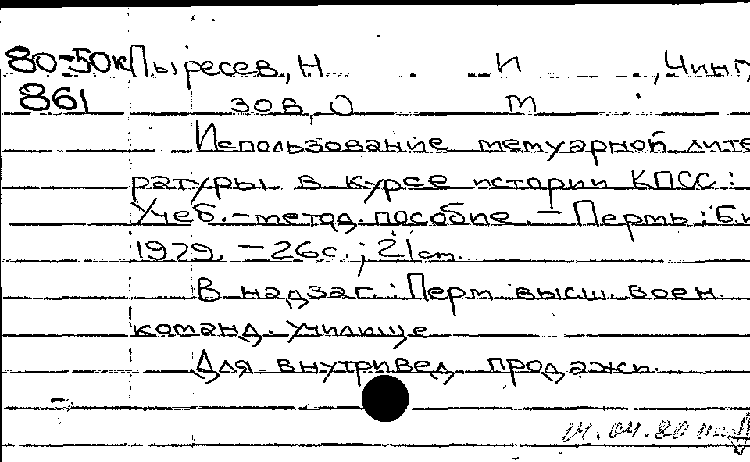 80-50к Пыресев, Н И , Чинг
861 зов, О т
Использование мемуарной лите
ратуры в курсе истории КПСС:
Учеб.-метод. пособие. - Пермь: Б.и
1979. - 26с.; 21см.
В надзаг.: Перм высш. воен.
команд. училище
Для внутривед продажи.
04.80